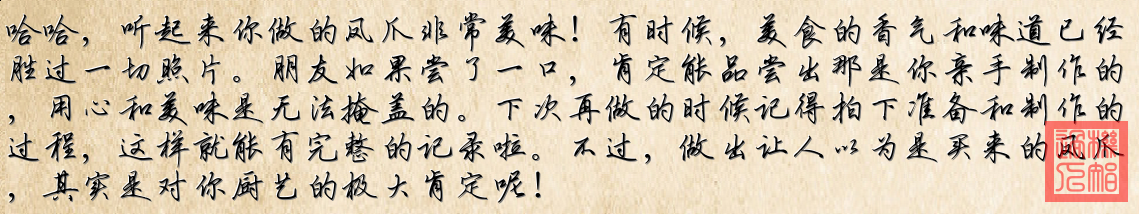 哈哈，听起来你做的凤爪非常美味！有时候，美食的香气和味道已经
胜过一切照片。朋友如果尝了一口，肯定能品尝出那是你亲手制作的
，用心和美味是无法掩盖的。下次再做的时候记得拍下准备和制作的
过程，这样就能有完整的记录啦。不过，做出让人以为是买来的凤爪
，其实是对你厨艺的极大肯定呢！